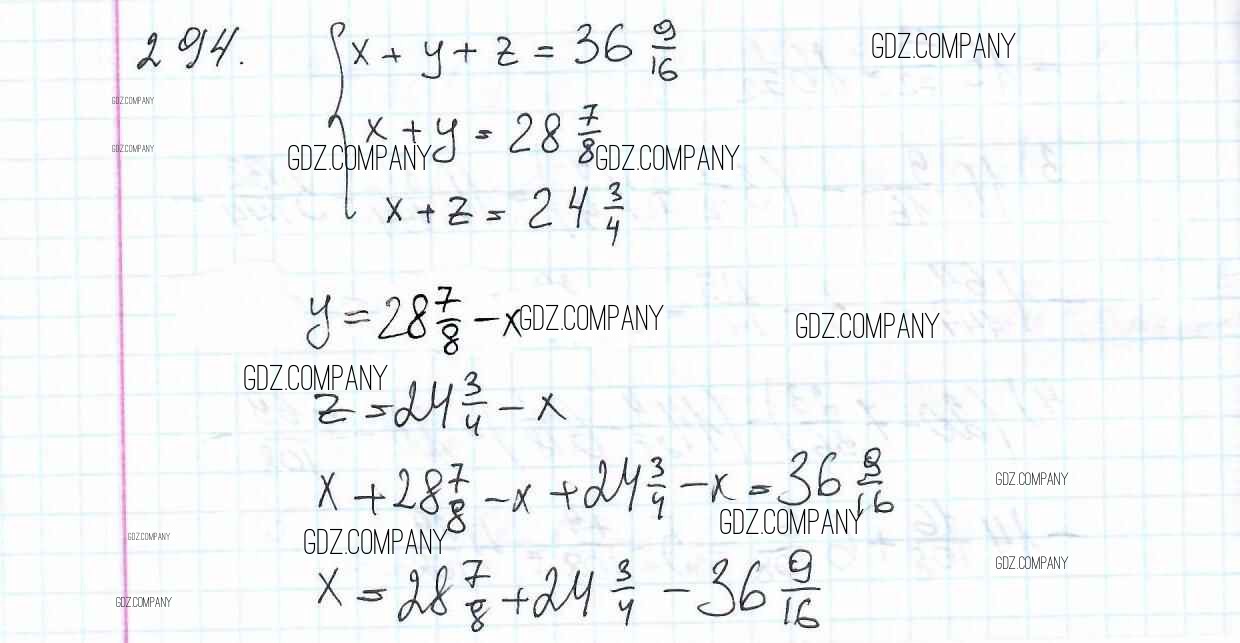 294. { x + y + z = 36 9/16
GDZ.COMPANY
GDZ.COMPANY
x + y = 28 7/8
GDZ.COMPANY
GDZ.COMPANY
GDZ.COMPANY
x + z = 24 3/4
y = 28 7/8 - x
GDZ.COMPANY
GDZ.COMPANY
GDZ.COMPANY
z = 24 3/4 - x
x + 28 7/8 - x + 24 3/4 - x = 36 9/16
GDZ.COMPANY
GDZ.COMPANY
GDZ.COMPANY
GDZ.COMPANY
GDZ.COMPANY
x = 28 7/8 + 24 3/4 - 36 9/16
GDZ.COMPANY